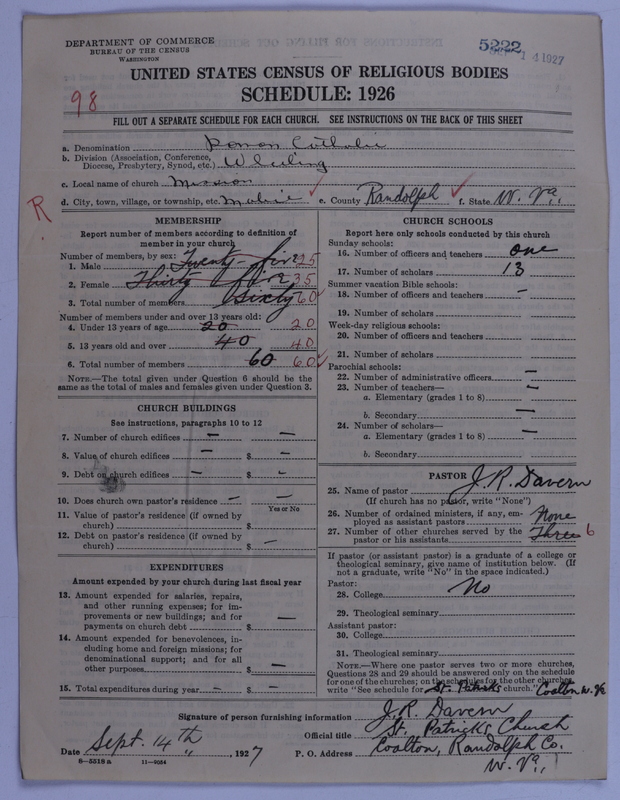 DEPARTMENT OF COMMERCE
BUREAU OF THE CENSUS
WASHINGTON
5222
14 1927
UNITED STATES CENSUS OF RELIGIOUS BODIES
SCHEDULE: 1926
98
FILL OUT A SEPARATE SCHEDULE FOR EACH CHURCH. SEE INSTRUCTIONS ON THE BACK OF THIS SHEET
a. Denomination Roman Catholic
b. Division (Association, Conference, Diocese, Presbytery, Synod, etc.) Wheeling
c. Local name of church Mission
d. City, town, village, or township, etc. Mabie e. County Randolph f. State W. Va.
R
MEMBERSHIP
Report number of members according to definition of
member in your church
Number of members, by sex:
1. Male Twenty-five 25
2. Female Thirty five 35
3. Total number of members Sixty 60
Number of members under and over 13 years old:
4. Under 13 years of age 20 20
5. 13 years old and over 40 40
6. Total number of members 60 60
NOTE.—The total given under Question 6 should be the
same as the total of males and females given under Question 3.
CHURCH BUILDINGS
See instructions, paragraphs 10 to 12
7. Number of church edifices — —
8. Value of church edifices — $ —
9. Debt on church edifices — $ —
10. Does church own pastor's residence — —
Yes or No
11. Value of pastor's residence (if owned by
church) $
12. Debt on pastor's residence (if owned by
church) $ —
EXPENDITURES
Amount expended by your church during last fiscal year
13. Amount expended for salaries, repairs,
and other running expenses; for im-
provements or new buildings; and for
payments on church debt $ —
14. Amount expended for benevolences, in-
cluding home and foreign missions; for
denominational support; and for all
other purposes $ —
15. Total expenditures during year — $ —
CHURCH SCHOOLS
Report here only schools conducted by this church
Sunday schools:
16. Number of officers and teachers one
17. Number of scholars 13
Summer vacation Bible schools:
18. Number of officers and teachers —
19. Number of scholars
Week-day religious schools:
20. Number of officers and teachers —
21. Number of scholars
Parochial schools:
22. Number of administrative officers —
23. Number of teachers—
a. Elementary (grades 1 to 8) —
b. Secondary —
24. Number of scholars—
a. Elementary (grades 1 to 8) —
b. Secondary
PASTOR
25. Name of pastor J. R. Davern
(If church has no pastor, write "None")
26. Number of ordained ministers, if any, em-
ployed as assistant pastors None
27. Number of other churches served by the
pastor or his assistants Three 6
If pastor (or assistant pastor) is a graduate of a college or
theological seminary, give name of institution below. (If
not a graduate, write "No" in the space indicated.)
Pastor:
28. College No
29. Theological seminary
Assistant pastor:
30. College
31. Theological seminary
NOTE.—Where one pastor serves two or more churches,
Questions 28 and 29 should be answered only on the schedule
for one of the churches; on the schedules for the other churches
write "See schedule for St. Patricks church." Coalton W. Va
Signature of person furnishing information J. R. Davern
Official title St. Patricks Church
Date Sept. 14th, 1927 P. O. Address Coalton, Randolph Co.
W. Va.
8—5318a 11—9054